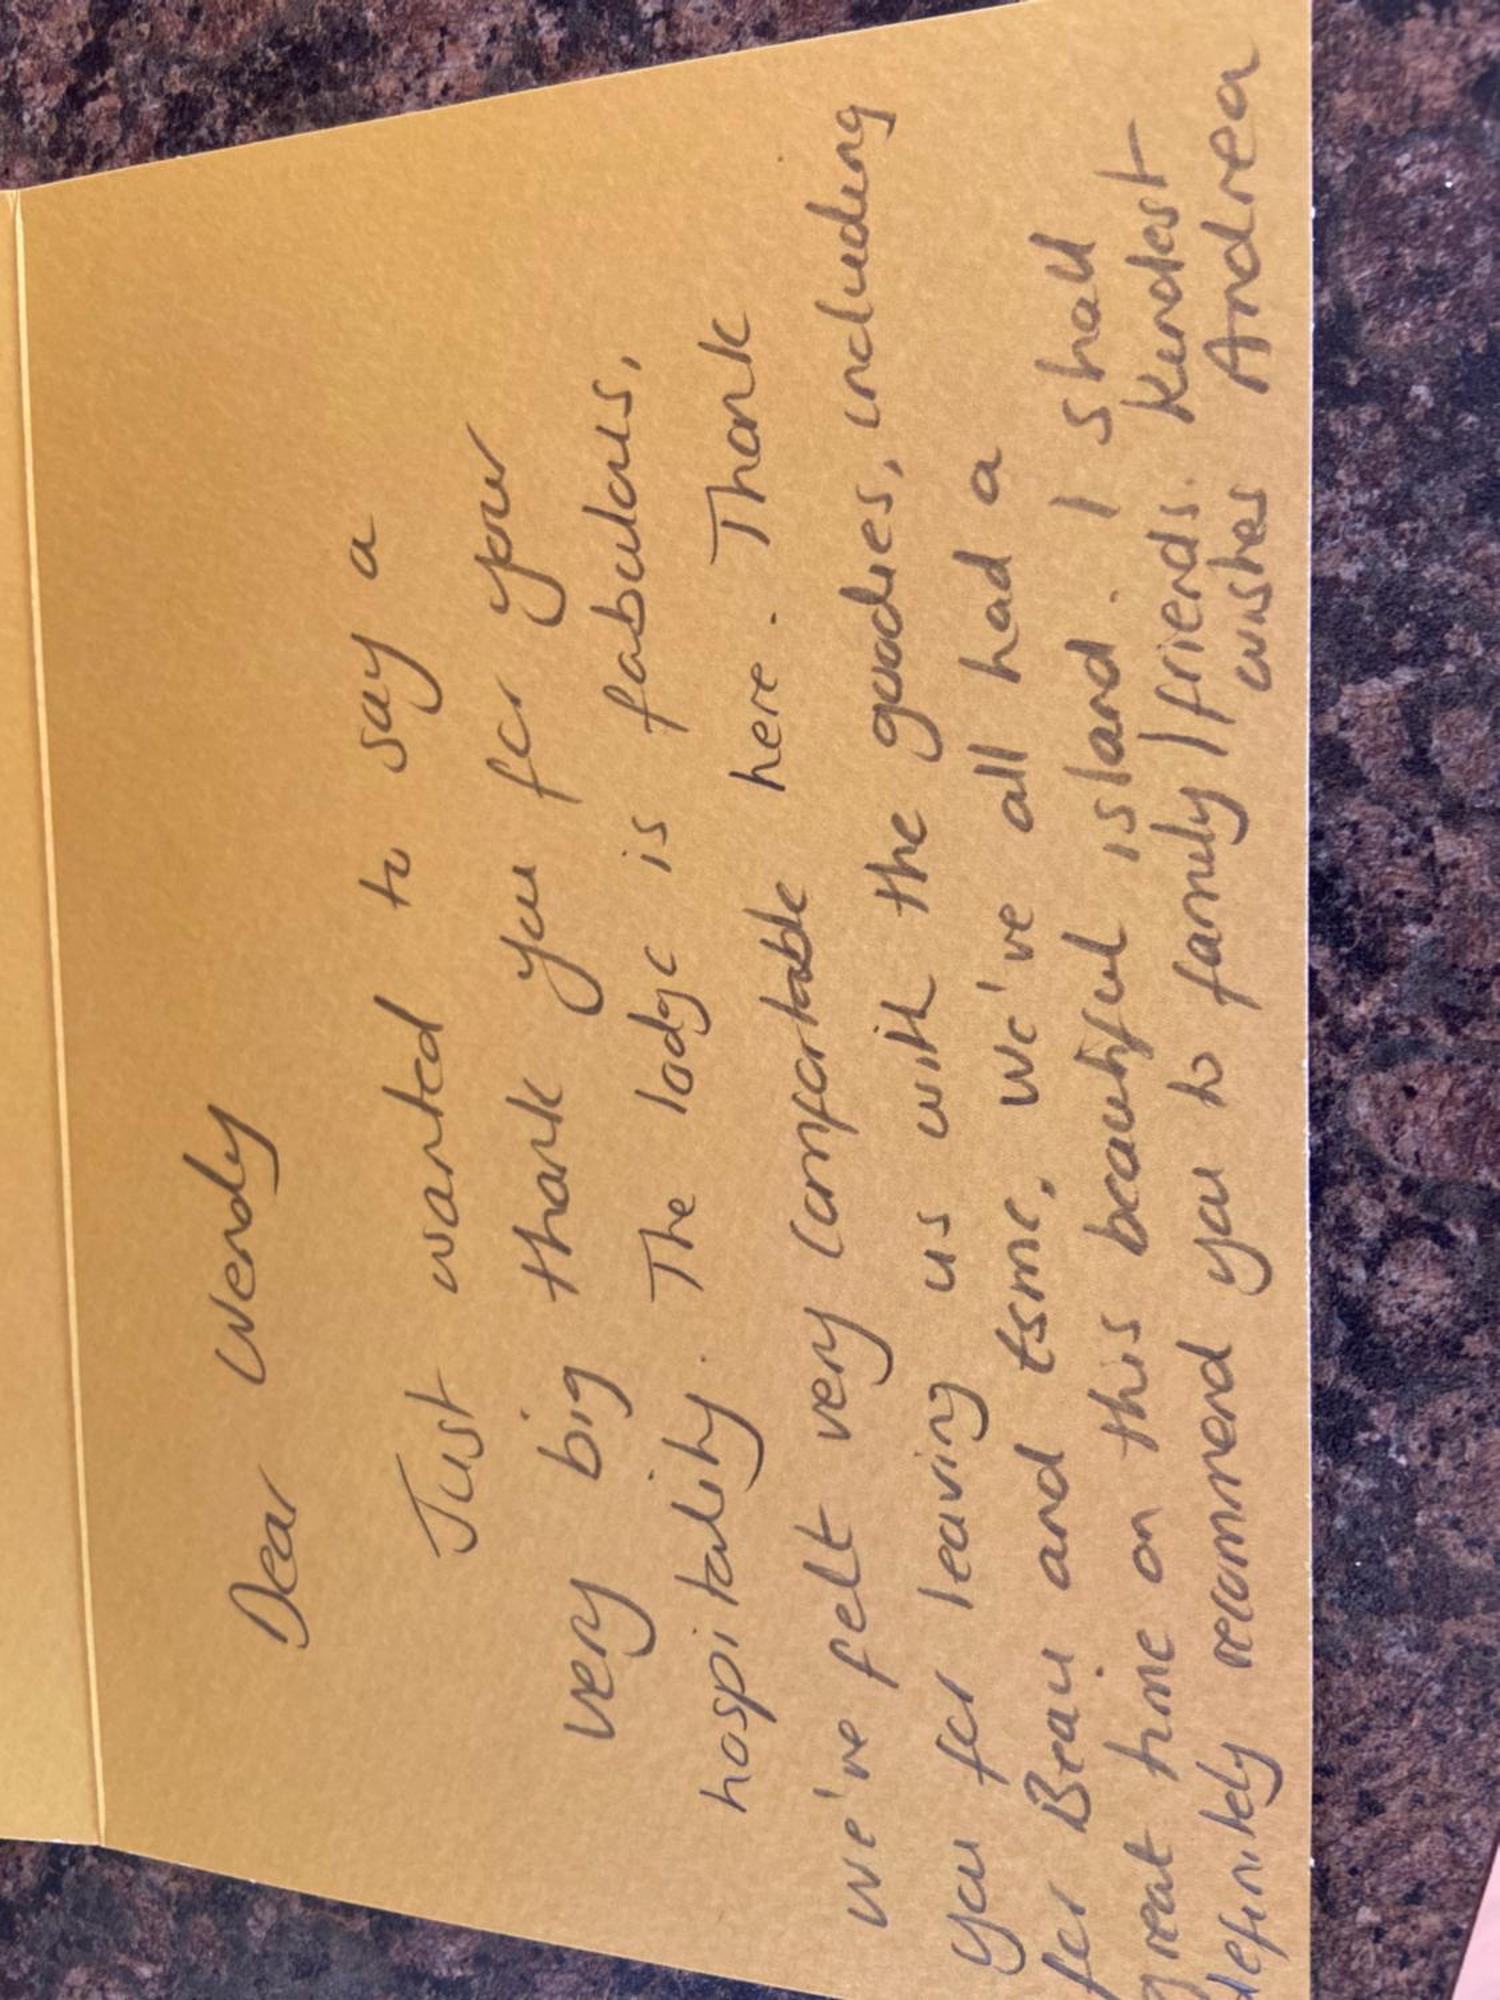 Dear Wendy
Just wanted to say a
very big thank you for your
hospitality. The lodge is fabulous,
we've felt very comfortable here. Thank
you for leaving us with the goodies, including
for Beau and Esme, we've all had a
great time on this beautiful island. I shall
definitely recommend you to family/friends. Kindest
wishes Andrea